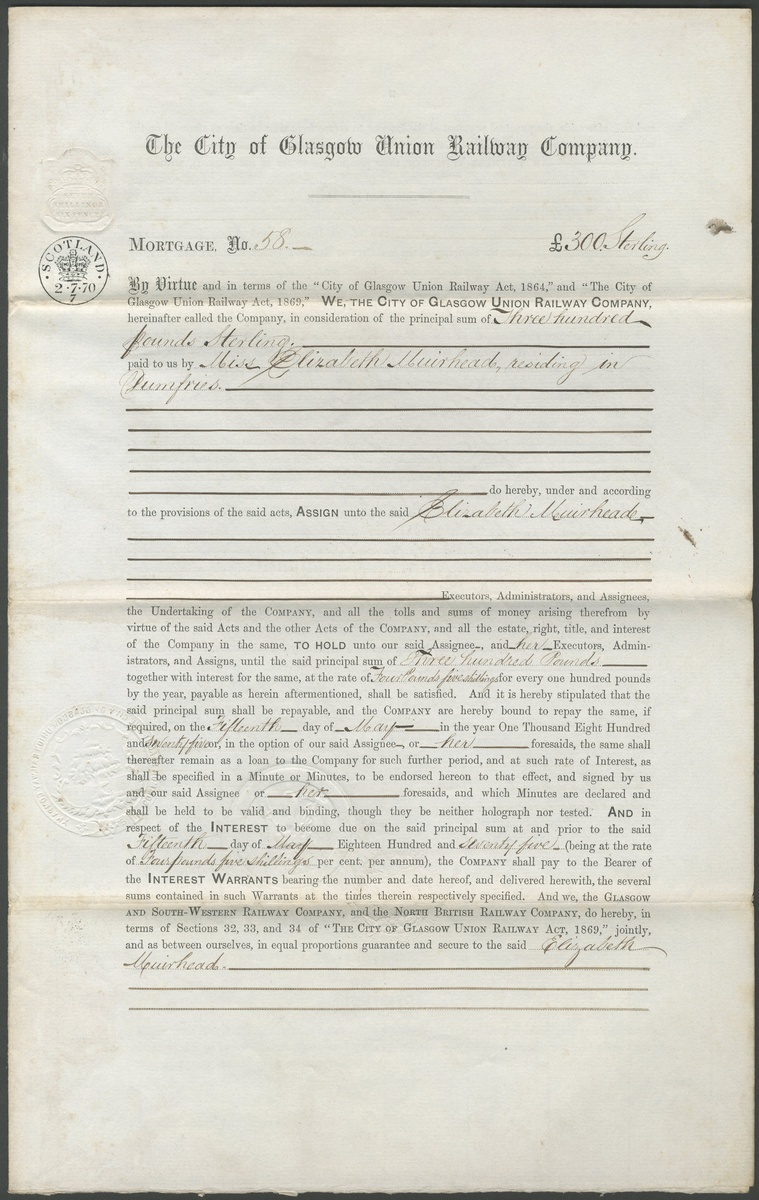 The City of Glasgow Union Railway Company.
Mortgage, No. 58. £300 Sterling.
SCOTLAND
2·7·70
7
By Virtue and in terms of the “City of Glasgow Union Railway Act, 1864,” and “The City of
Glasgow Union Railway Act, 1869,” We, the City of Glasgow Union Railway Company,
hereinafter called the Company, in consideration of the principal sum of Three hundred
pounds Sterling.
paid to us by Miss Elizabeth Muirhead, residing in
Dumfries.
do hereby, under and according
to the provisions of the said acts, Assign unto the said Elizabeth Muirhead,
Executors, Administrators, and Assignees,
the Undertaking of the Company, and all the tolls and sums of money arising therefrom by
virtue of the said Acts and the other Acts of the Company, and all the estate, right, title, and interest
of the Company in the same, TO HOLD unto our said Assignee, and her Executors, Admin-
istrators, and Assigns, until the said principal sum of Three hundred Pounds
together with interest for the same, at the rate of Four Pounds five shillings for every one hundred pounds
by the year, payable as herein aftermentioned, shall be satisfied. And it is hereby stipulated that the
said principal sum shall be repayable, and the Company are hereby bound to repay the same, if
required, on the Fifteenth day of May in the year One Thousand Eight Hundred
and Seventy five or, in the option of our said Assignee, or her foresaids, the same shall
thereafter remain as a loan to the Company for such further period, and at such rate of Interest, as
shall be specified in a Minute or Minutes, to be endorsed hereon to that effect, and signed by us
and our said Assignee or her foresaids, and which Minutes are declared and
shall be held to be valid and binding, though they be neither holograph nor tested. And in
respect of the Interest to become due on the said principal sum at and prior to the said
Fifteenth day of May Eighteen Hundred and Seventy five (being at the rate
of Four pounds five shillings per cent. per annum), the Company shall pay to the Bearer of
the Interest Warrants bearing the number and date hereof, and delivered herewith, the several
sums contained in such Warrants at the times therein respectively specified. And we, the Glasgow
and South-Western Railway Company, and the North British Railway Company, do hereby, in
terms of Sections 32, 33, and 34 of “The City of Glasgow Union Railway Act, 1869,” jointly,
and as between ourselves, in equal proportions guarantee and secure to the said Elizabeth
Muirhead.